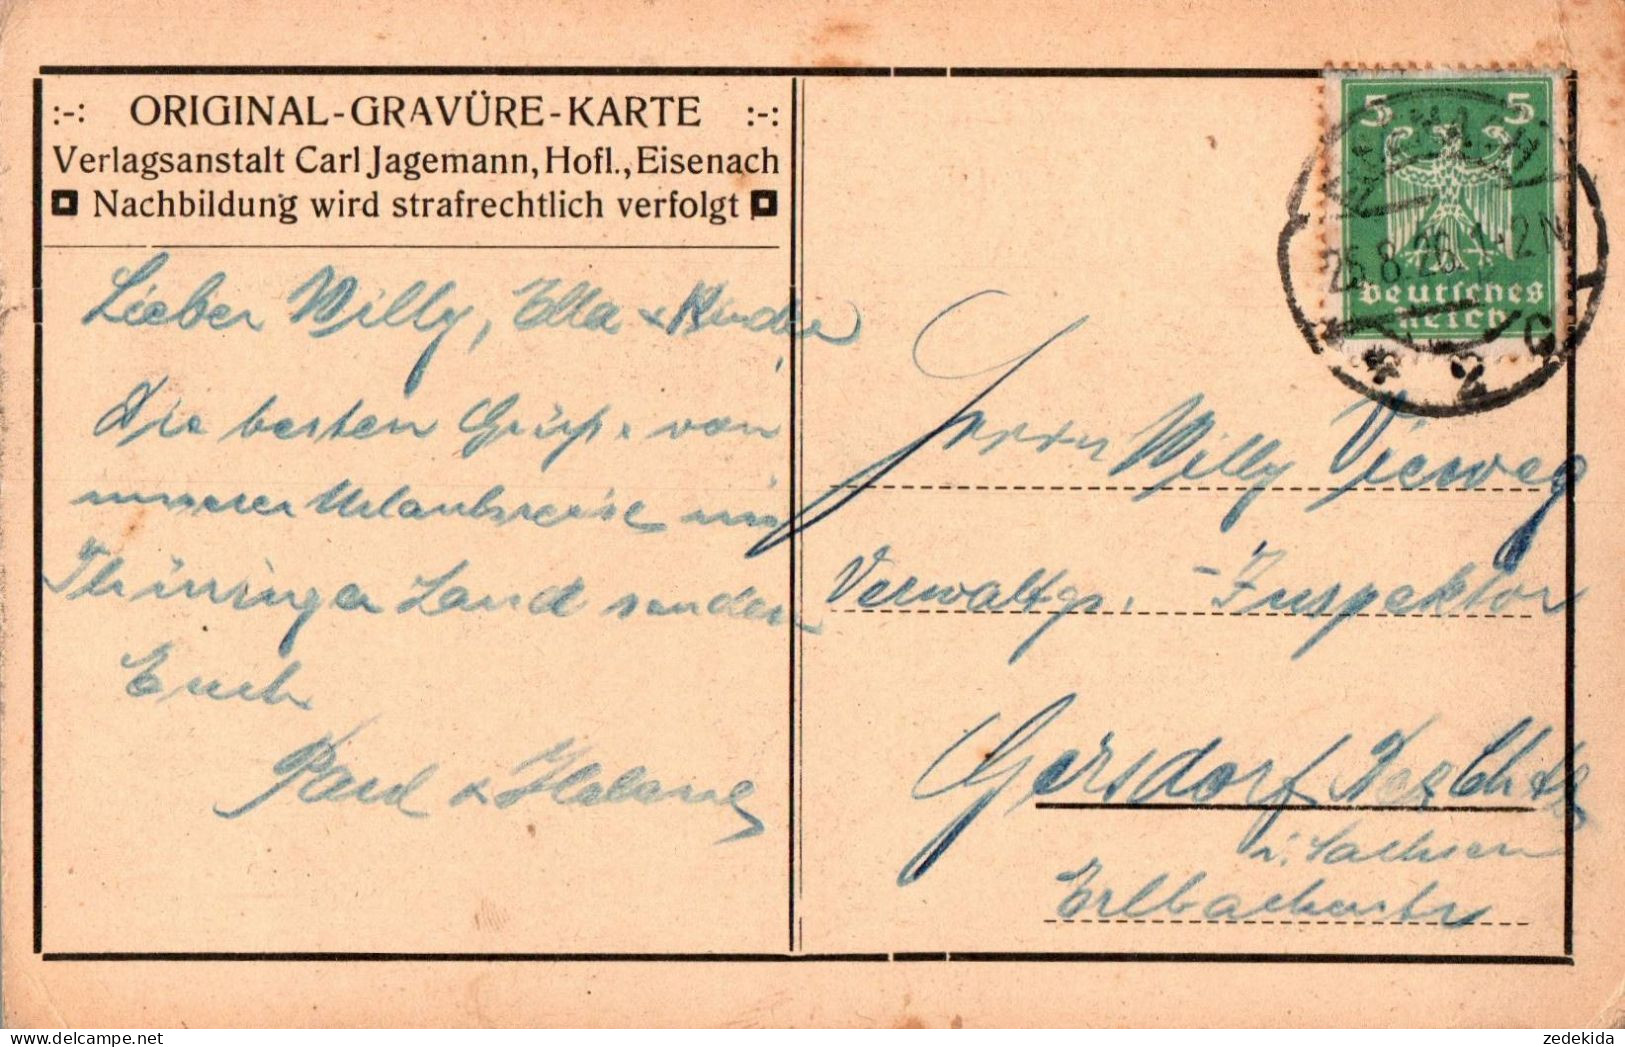 :-: ORIGINAL-GRAVÜRE-KARTE :-:
Verlagsanstalt Carl Jagemann, Hofl., Eisenach
Nachbildung wird strafrechtlich verfolgt
Lieber Willy, Ella + Kinder
Die besten Grüße von
unserer Urlaubsreise im
Thüringer Land senden
Euch
Paul + Helene
5 5
Deutsches
Reich
EISENACH
25.8.26. 1-2 N
* 2 C
Herrn Willy Vieweg
Verwaltgs.-Inspektor
Gersdorf Bez Chtz
i. Sachsen
Erlbacherstr
zedekida